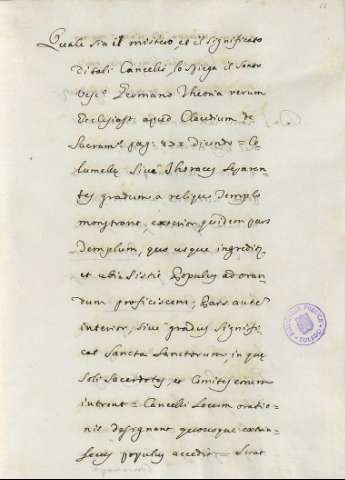 Quale sia il misterio, et il significato
di tali Cancelli lo spiega il Santo
Vesc.º Germano Theoria rerum
Ecclesiast. apud Claudium de
Sacram. pag: dicendo = Co
lumellę, sive Thoraces separan-
tes gradum a reliquo Templo
monstrant, exterior quidem pars
Templum, quo usque ingredit,
et ubi sistit Populus ad oran
dum proficiscens; Pars aute
interior, sive gradus signifi
cat Sancta Sanctorum, in que
soli Sacerdotes, et Comites eorum
intrant = Cancelli Locum oratio-
nis designant quousque extrin
secus populus accedit =
BIBLIOTECA PUBLICA
TOLEDO